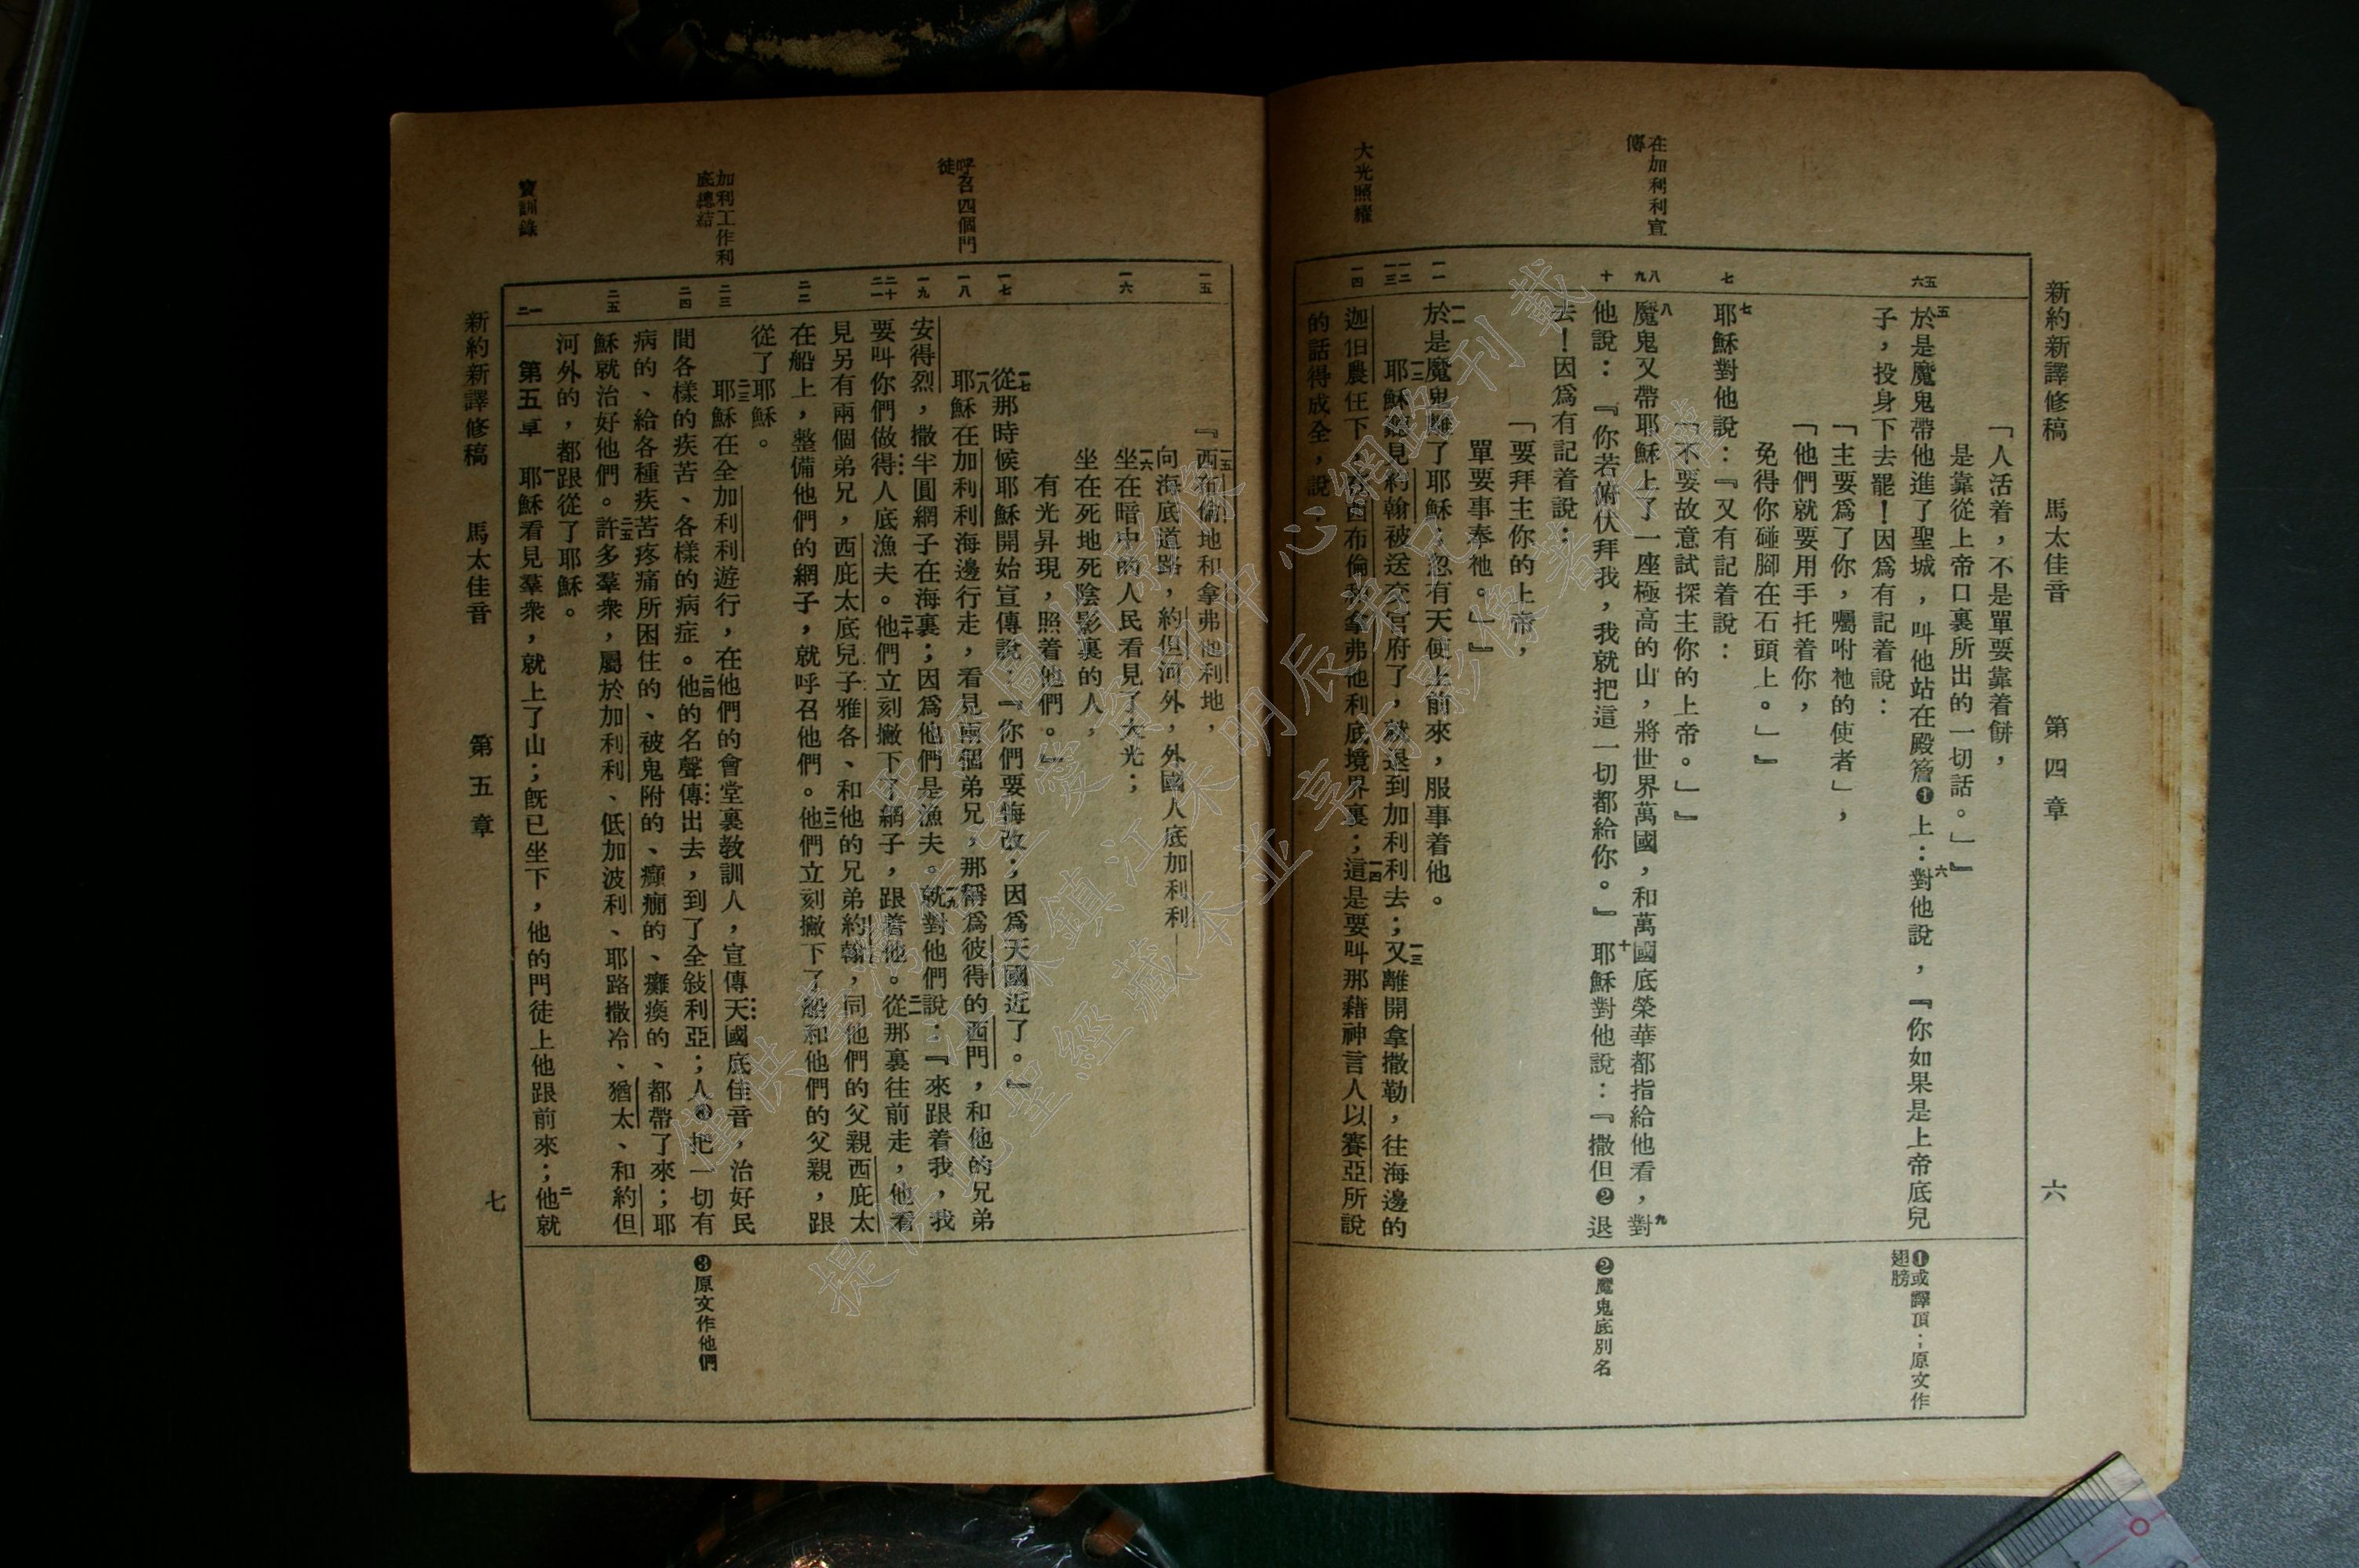 新約新譯修稿　馬太佳音　第四章　六
「人活着，不是單要靠着餅，
是靠從上帝口裏所出的一切話。」』
五於是魔鬼帶他進了聖城，叫他站在殿簷❶上：六對他說，『你如果是上帝底兒
子，投身下去罷！因爲有記着說：
「主要爲了你，囑咐祂的使者」，
「他們就要用手托着你，
免得你碰腳在石頭上。」』
七耶穌對他說：『又有記着說：
「不要故意試探主你的上帝。」』
八魔鬼又帶耶穌上了一座極高的山，將世界萬國，和萬國底榮華都指給他看，九對
他說：『你若俯伏拜我，我就把這一切都給你。』十耶穌對他說：『撒但❷退
去！因爲有記着說：
「要拜主你的上帝，
單要事奉祂。」』
一一於是魔鬼離了耶穌；忽有天使上前來，服事着他。
一二耶穌聽見約翰被送交官府了，就退到加利利去；一三又離開拿撒勒，往海邊的
迦伯農住下，在西布倫和拿弗他利底境界裏；一四這是要叫那藉神言人以賽亞所說
的話得成全，說：
五六
七
八九
十
一一
一二一三
一四
在加利利宣傳
大光照耀
❶或譯頂；原文作翅膀
❷魔鬼底別名
一五『西布倫地和拿弗他利地，
向海底道路，約但河外，外國人底加利利—
一六坐在暗中的人民看見了大光；
坐在死地死陰影裏的人，
有光昇現，照着他們。』
一七從那時候耶穌開始宣傳說：『你們要悔改；因爲天國近了。』
一八耶穌在加利利海邊行走，看見兩個弟兄，那稱爲彼得的西門，和他的兄弟
安得烈，撒半圓網子在海裏；因爲他們是漁夫。一九就對他們說：『來跟着我，我
要叫你們做得人底漁夫。二十他們立刻撇下了網子，跟着他。二一從那裏往前走，他看
見另有兩個弟兄，西庇太底兒子雅各、和他的兄弟約翰，同他們的父親西庇太
在船上，整備他們的網子，就呼召他們。二二他們立刻撇下了船和他們的父親，跟
從了耶穌。
二三耶穌在全加利利遊行，在他們的會堂裏教訓人，宣傳天國底佳音，治好民
間各樣的疾苦、各樣的病症。二四他的名聲傳出去，到了全敍利亞；人❸把一切有
病的、給各種疾苦疼痛所困住的、被鬼附的、癲癇的、癱瘓的、都帶了來；耶
穌就治好他們。二五許多羣衆，屬於加利利、低加波利、耶路撒冷、猶太、和約但
河外的，都跟從了耶穌。
第五章　一耶穌看見羣衆，就上了山；旣已坐下，他的門徒上他跟前來；二他就
一五
一六
一七
一八
一九
二十二一
二二
二三
二四
二五
一二
呼召四個門徒
加利工作利底總結
寶訓錄
❸原文作他們
新約新譯修稿　馬太佳音　第五章　七